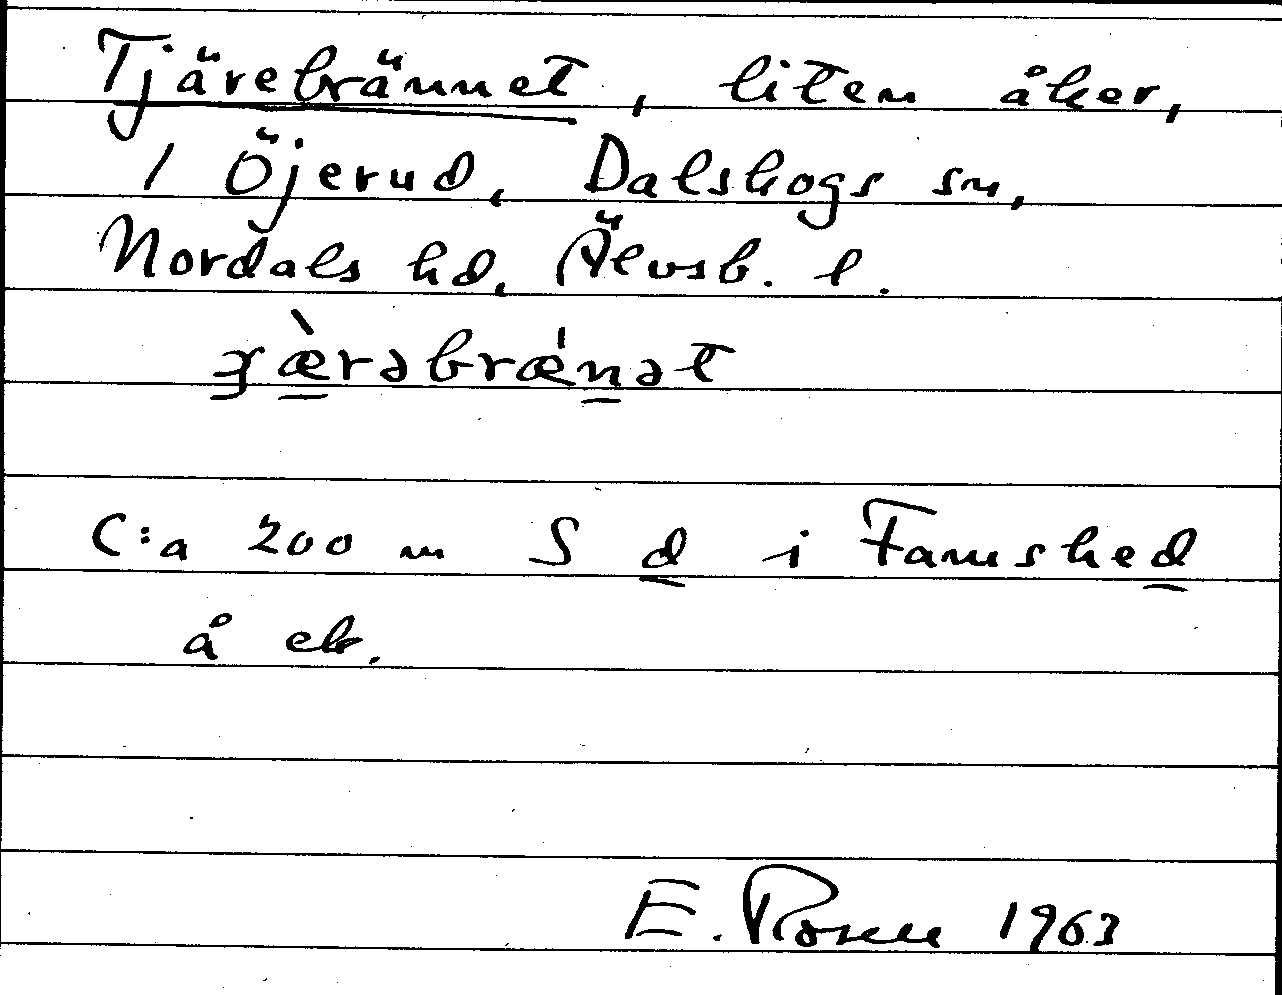 Tjärebrännet, liten åker,
1 Öjerud, Dalskogs sn,
Nordals hd, Älvsb. l.
C:a 200 m S d i Famshed
å ek.
E. Rosen 1963